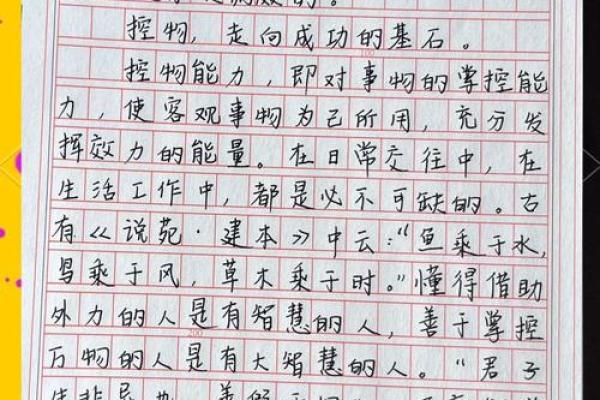 的。
控物，走向成功的基石。
控物能力，即对事物的掌控能
力，使客观事物为己所用，充分发
挥效力的能量。在日常交往中，在
生活工作中，都是必不可缺的。古
有《说苑·建本》中云：“鱼乘于水，
鸟乘于风，草木乘于时。”懂得借助
外力的人是有智慧的人，善于掌控
万物的人是有大智慧的人。“君子